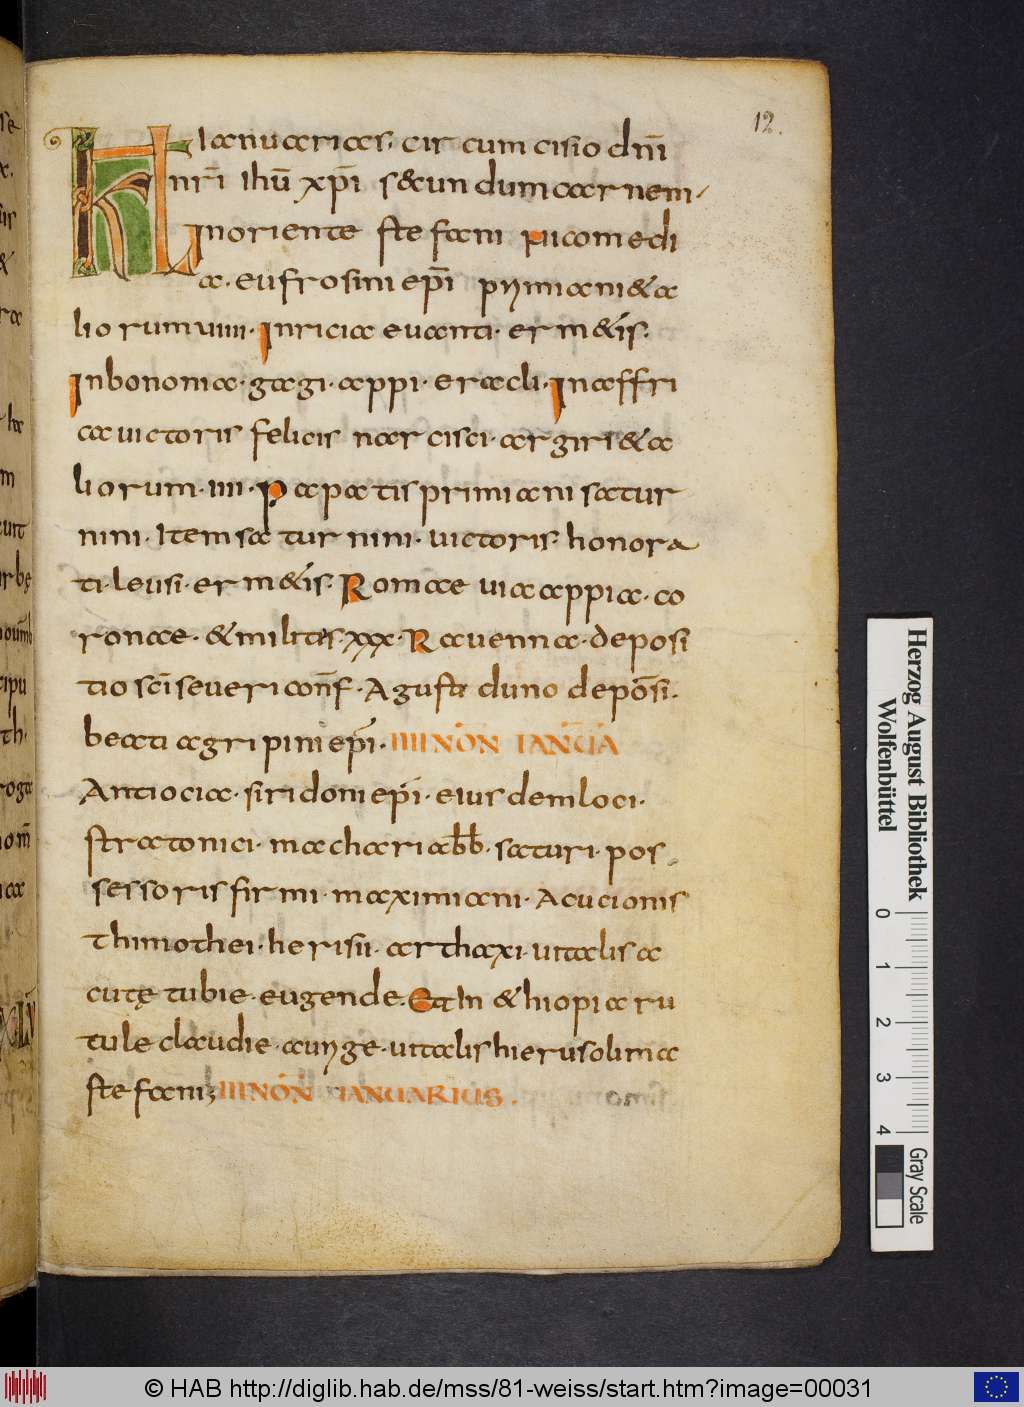 12.
KL ianuarias· circumcisio dn̄i
nr̄i ihū xp̄i secundum carnem·
In oriente stefani nicomedi
a· eufrosini ep̄i pymiani & a
liorum uiiii· Inricia euanti· erm&is·
In bononia· gagi· appi· eracli· In affri
ca uictoris felicis narcisci· argiri & a
liorum· iiii· Papatis primiani satur
nini· Item saturnini· uictoris· honora
ti· leusi· erm&is· Romae uia appia· co
ronae· & milites· xxx· Rauenna· deposi
tio sc̄i seueri conf̄· Agustoduno depos̄i·
beati agripini ep̄i· IIII NON̄ IANUA
Antiocia· siridoni ep̄i· eiusdem loci·
stratonici· machari abb̄· saturi· pos
sessoris firmi· maximiani· Acucionis
thimothei· herisii· arthaxi· uitalis a
cutę tubie· eugende· Et In &hiopia ru
tule claudie· aunge· uitalis hierusolima
stefani; III NON̄ IANUARIUS.
Herzog August Bibliothek
Wolfenbüttel
0 1 2 3 4
Gray Scale
© HAB http://diglib.hab.de/mss/81-weiss/start.htm?image=00031